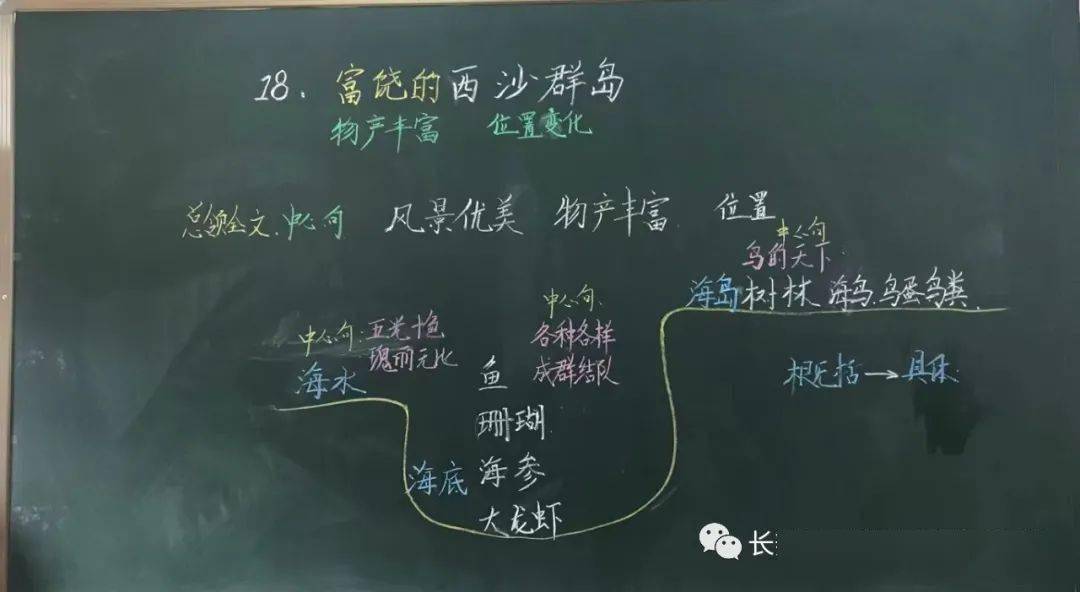 18. 富饶的西沙群岛
物产丰富 位置变化
总领全文.中心句 风景优美 物产丰富. 位置
中心句
鸟的天下.
海岛 树林 海鸟.鸟蛋鸟类.
中心句: 五光十色
瑰丽无比
海水
中心句:
各种各样
成群结队
鱼
珊瑚.
海底 海参
大龙虾
概括→具体
长